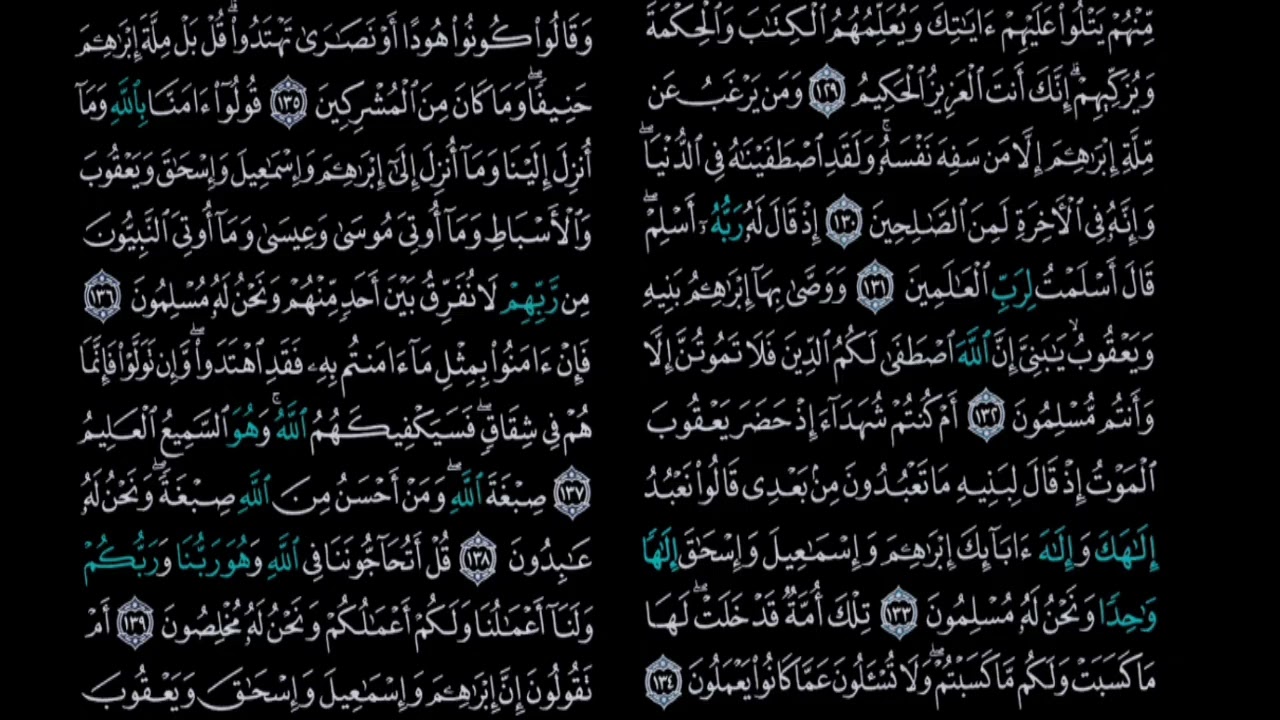 مِّنْهُمْ يَتْلُوا۟ عَلَيْهِمْ ءَايَـٰتِكَ وَيُعَلِّمُهُمُ ٱلْكِتَـٰبَ وَٱلْحِكْمَةَ
وَيُزَكِّيهِمْ ۚ إِنَّكَ أَنتَ ٱلْعَزِيزُ ٱلْحَكِيمُ ١٢٩ وَمَن يَرْغَبُ عَن
مِّلَّةِ إِبْرَٰهِـۧمَ إِلَّا مَن سَفِهَ نَفْسَهُۥ ۚ وَلَقَدِ ٱصْطَفَيْنَـٰهُ فِى ٱلدُّنْيَا ۖ
وَإِنَّهُۥ فِى ٱلْـَٔاخِرَةِ لَمِنَ ٱلصَّـٰلِحِينَ ١٣٠ إِذْ قَالَ لَهُۥ رَبُّهُۥٓ أَسْلِمْ ۖ
قَالَ أَسْلَمْتُ لِرَبِّ ٱلْعَـٰلَمِينَ ١٣١ وَوَصَّىٰ بِهَآ إِبْرَٰهِـۧمُ بَنِيهِ
وَيَعْقُوبُ يَـٰبَنِىَّ إِنَّ ٱللَّهَ ٱصْطَفَىٰ لَكُمُ ٱلدِّينَ فَلَا تَمُوتُنَّ إِلَّا
وَأَنتُم مُّسْلِمُونَ ١٣٢ أَمْ كُنتُمْ شُهَدَآءَ إِذْ حَضَرَ يَعْقُوبَ
ٱلْمَوْتُ إِذْ قَالَ لِبَنِيهِ مَا تَعْبُدُونَ مِنۢ بَعْدِى قَالُوا۟ نَعْبُدُ
إِلَـٰهَكَ وَإِلَـٰهَ ءَابَآئِكَ إِبْرَٰهِـۧمَ وَإِسْمَـٰعِيلَ وَإِسْحَـٰقَ إِلَـٰهًا
وَٰحِدًا وَنَحْنُ لَهُۥ مُسْلِمُونَ ١٣٣ تِلْكَ أُمَّةٌ قَدْ خَلَتْ ۖ لَهَا
مَا كَسَبَتْ وَلَكُم مَّا كَسَبْتُمْ ۖ وَلَا تُسْـَٔلُونَ عَمَّا كَانُوا۟ يَعْمَلُونَ ١٣٤
وَقَالُوا۟ كُونُوا۟ هُودًا أَوْ نَصَـٰرَىٰ تَهْتَدُوا۟ ۗ قُلْ بَلْ مِلَّةَ إِبْرَٰهِـۧمَ
حَنِيفًا ۖ وَمَا كَانَ مِنَ ٱلْمُشْرِكِينَ ١٣٥ قُولُوٓا۟ ءَامَنَّا بِٱللَّهِ وَمَآ
أُنزِلَ إِلَيْنَا وَمَآ أُنزِلَ إِلَىٰٓ إِبْرَٰهِـۧمَ وَإِسْمَـٰعِيلَ وَإِسْحَـٰقَ وَيَعْقُوبَ
وَٱلْأَسْبَاطِ وَمَآ أُوتِىَ مُوسَىٰ وَعِيسَىٰ وَمَآ أُوتِىَ ٱلنَّبِيُّونَ
مِن رَّبِّهِمْ لَا نُفَرِّقُ بَيْنَ أَحَدٍ مِّنْهُمْ وَنَحْنُ لَهُۥ مُسْلِمُونَ ١٣٦
فَإِنْ ءَامَنُوا۟ بِمِثْلِ مَآ ءَامَنتُم بِهِۦ فَقَدِ ٱهْتَدَوا۟ ۖ وَّإِن تَوَلَّوْا۟ فَإِنَّمَا
هُمْ فِى شِقَاقٍ ۖ فَسَيَكْفِيكَهُمُ ٱللَّهُ ۚ وَهُوَ ٱلسَّمِيعُ ٱلْعَلِيمُ
١٣٧ صِبْغَةَ ٱللَّهِ ۖ وَمَنْ أَحْسَنُ مِنَ ٱللَّهِ صِبْغَةً ۖ وَنَحْنُ لَهُۥ
عَـٰبِدُونَ ١٣٨ قُلْ أَتُحَآجُّونَنَا فِى ٱللَّهِ وَهُوَ رَبُّنَا وَرَبُّكُمْ
وَلَنَآ أَعْمَـٰلُنَا وَلَكُمْ أَعْمَـٰلُكُمْ وَنَحْنُ لَهُۥ مُخْلِصُونَ ١٣٩ أَمْ
تَقُولُونَ إِنَّ إِبْرَٰهِـۧمَ وَإِسْمَـٰعِيلَ وَإِسْحَـٰقَ وَيَعْقُوبَ